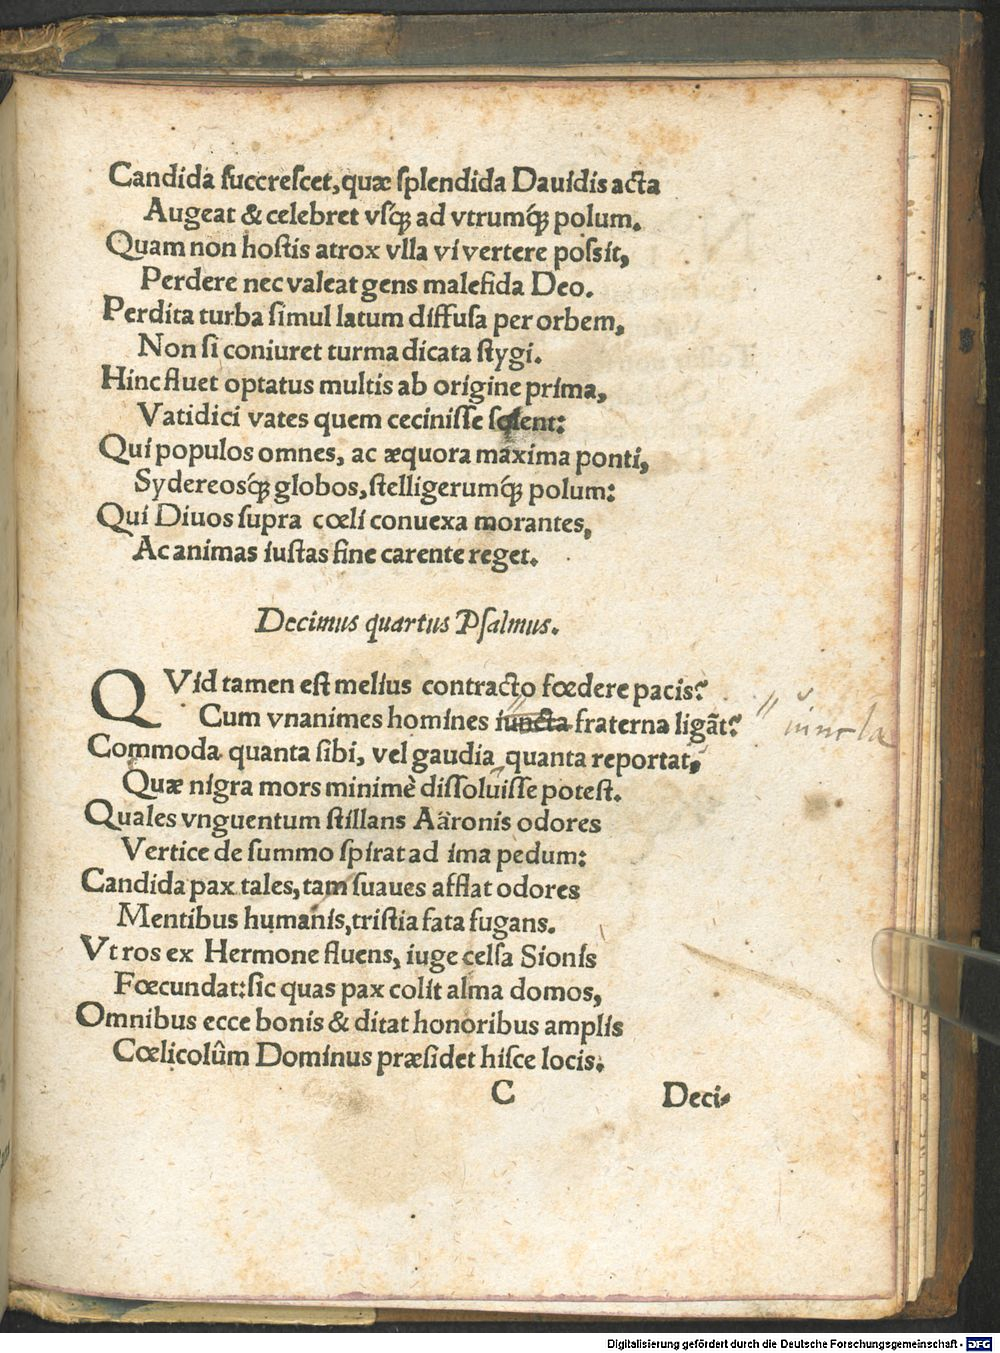 Candida succrescet, quæ splendida Dauidis acta
Augeat & celebret vsq́ꝫ ad vtrumq́ꝫ polum.
Quam non hostis atrox vlla vi vertere possit,
Perdere nec valeat gens malefida Deo.
Perdita turba simul latum diffusa per orbem,
Non si coniuret turma dicata stygi.
Hinc fluet optatus multis ab origine prima,
Vatidici vates quem cecinisse solent:
Qui populos omnes, ac æquora maxima ponti,
Sydereosq́ꝫ globos, stelligerumq́ꝫ polum:
Qui Diuos supra cœli conuexa morantes,
Ac animas iustas fine carente reget.
Decimus quartus Psalmus.
QVid tamen est melius contracto fœdere pacis?
Cum vnanimes homines iuncta fraterna ligãt? " iuncla
Commoda quanta sibi, vel gaudia quanta reportat,
Quæ nigra mors minimè dissoluisse potest.
Quales vnguentum stillans Aäronis odores
Vertice de summo spirat ad ima pedum:
Candida pax tales, tam suaues afflat odores
Mentibus humanis, tristia fata fugans.
Vt ros ex Hermone fluens, iuge celsa Sionis
Fœcundat: sic quas pax colit alma domos,
Omnibus ecce bonis & ditat honoribus amplis
Cœlicolûm Dominus præsidet hisce locis.
C Deci-
Digitalisierung gefördert durch die Deutsche Forschungsgemeinschaft - DFG